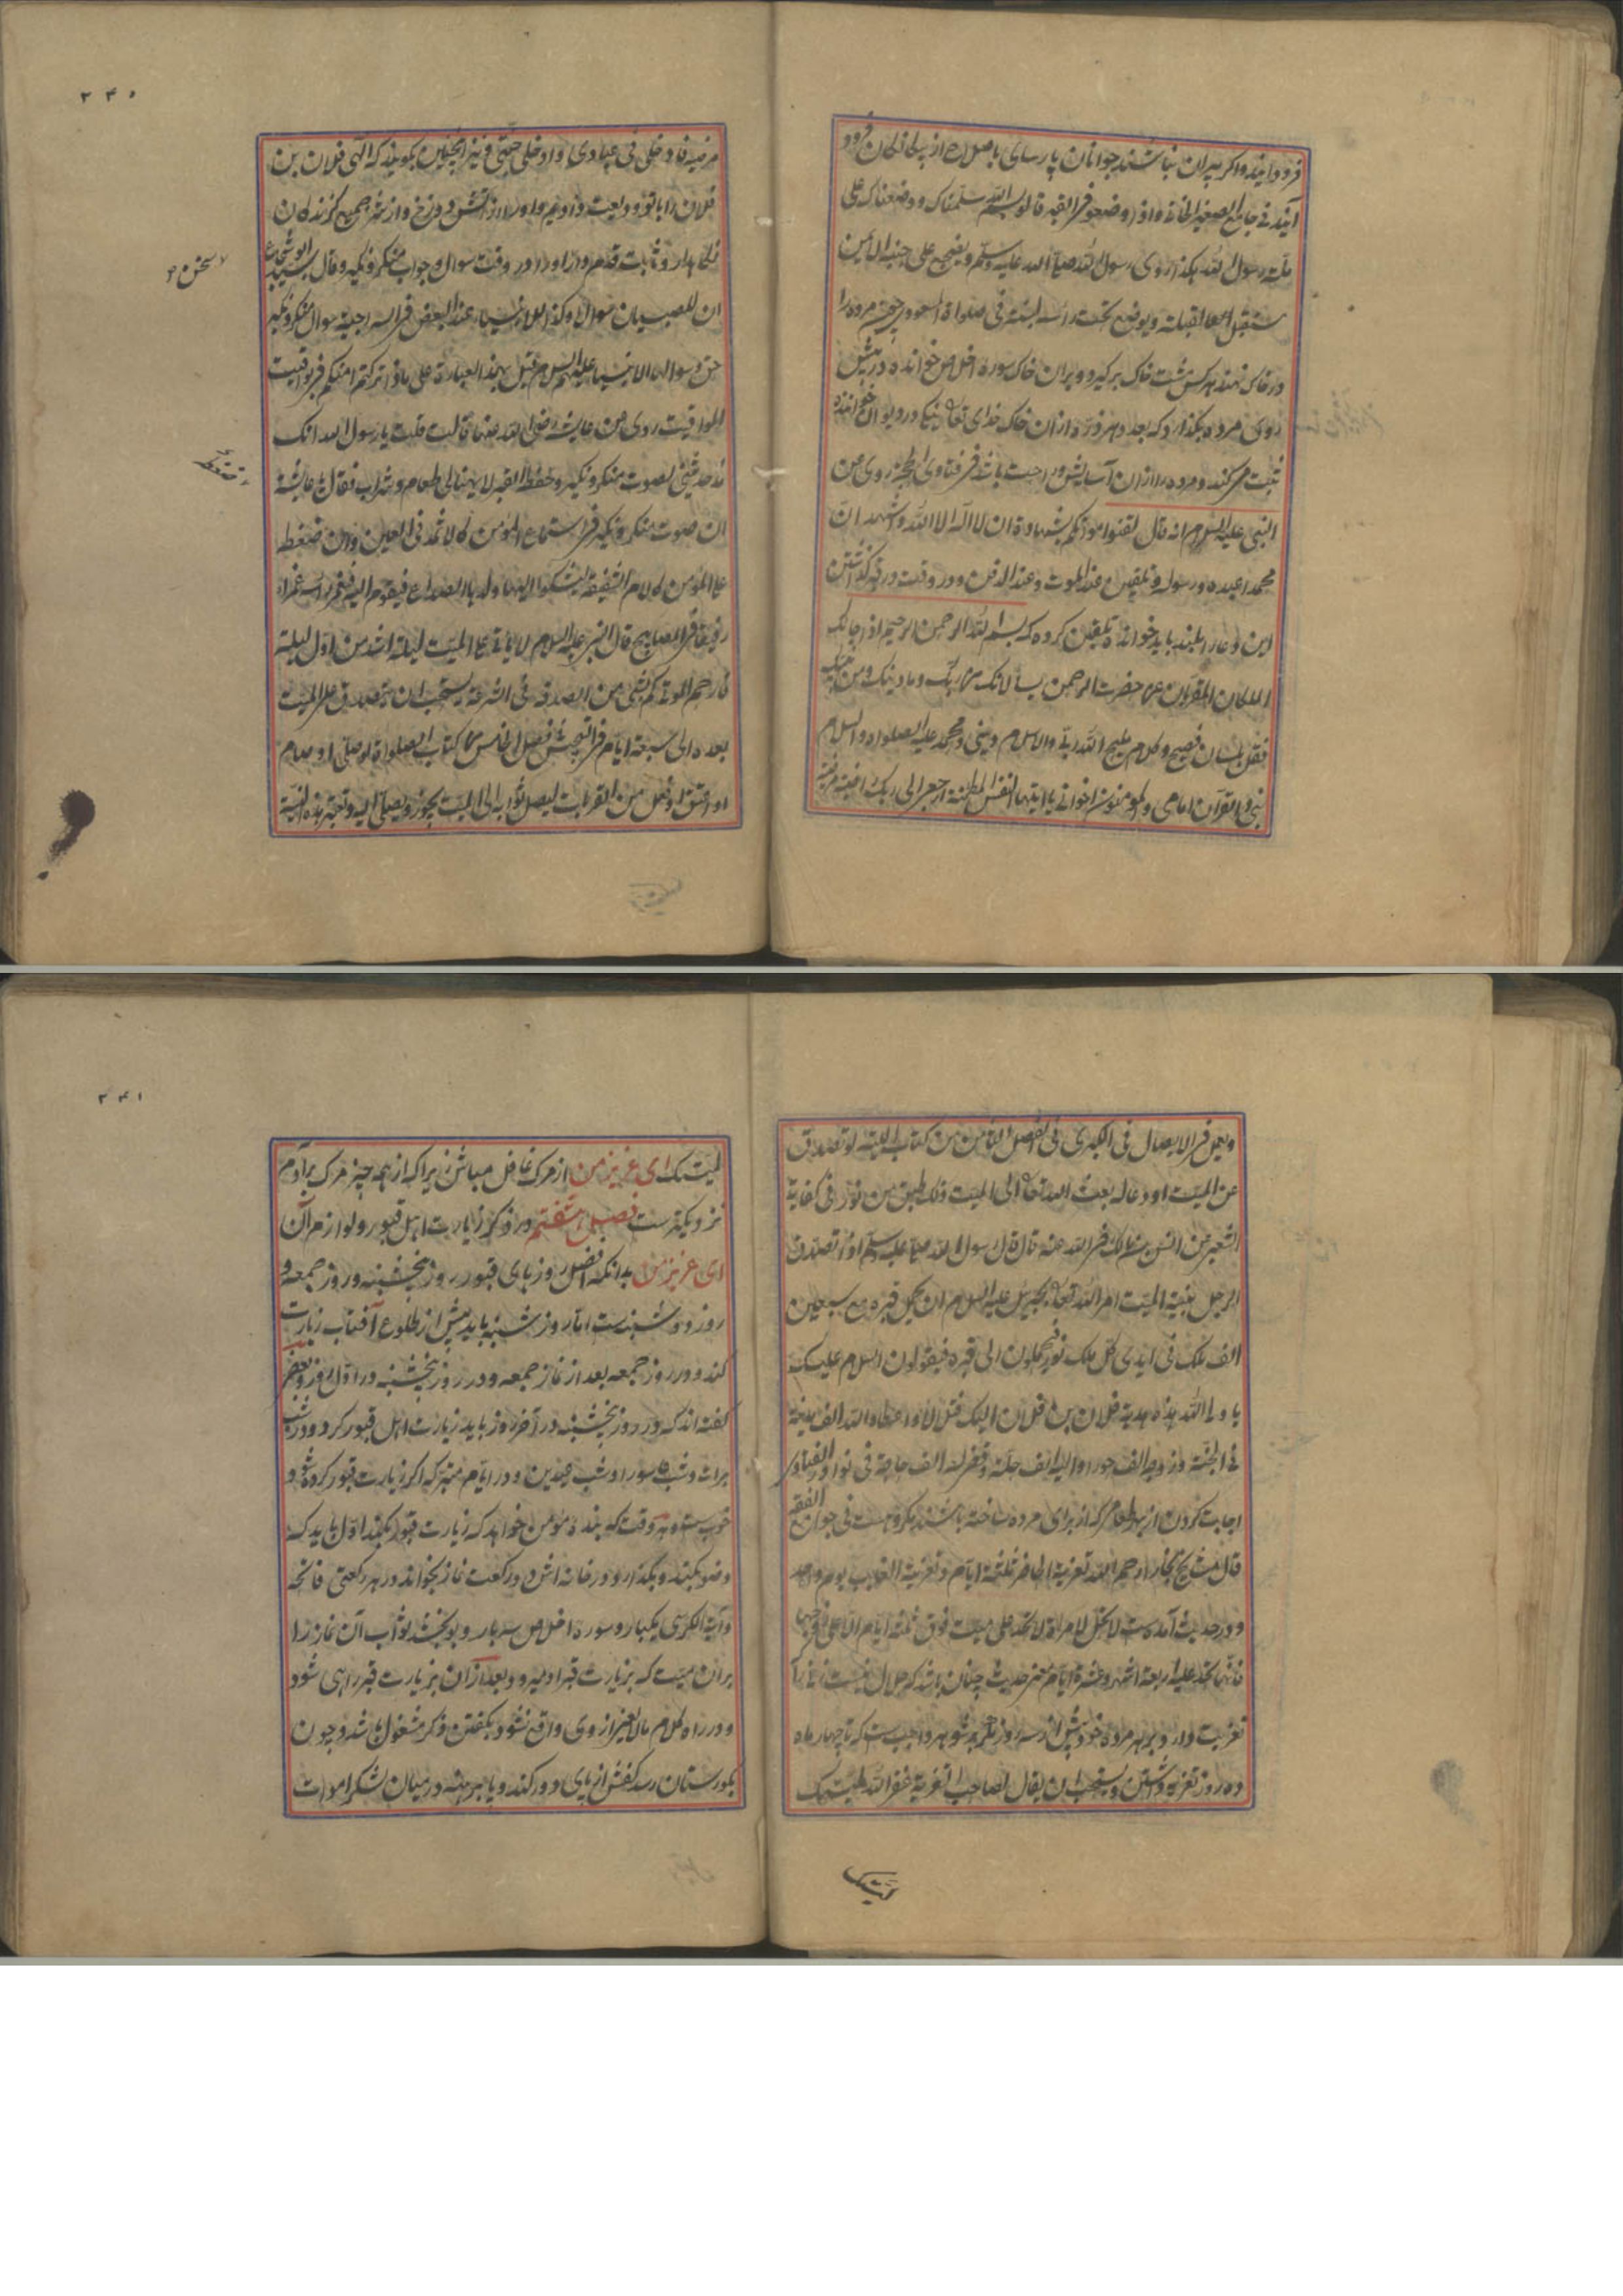 فرود آیند و اگر پیران نباشند جوانان پارسای با صلاح از بیگانگان فرود
آیند فی جامع الصغیر الخانی و اذا وضعوا فی القبر قالوا بسم الله سلمناک و وضعناک علی
ملة رسول الله هکذا روی رسول الله صلی الله علیه وسلم و یضجع علی جنبه الایمن
مستقبل القبلة و یوضع تحت راسه لبنة فی صلواة المسعودی چون مرده را
در خاک نهند هر کس مشت خاک برگیرد و بران خاک سوره اخلاص خوانده در پیش
روی مرده بگذارد که بعدد هر ذره ازان خاک خدای تعالی نیکی در دیوان خواننده
ثبت میکند و مرده را ازان آسایش و راحت باشد فی فتاوی الحجة روی عن
النبی علیه السلام انه قال لقنوا موتاکم بشهادة ان لا اله الا الله واشهد ان
محمدا عبده و رسوله و تلقین عند الموت و عند الدفن و در وقت در قبر گذاشتن
این دعا را بلند باید خوانده تلقین کرده که بسم الله الرحمن الرحیم اذا جاءک
الملکان المقربان من حضرت الرحمن یسالانک من ربک و ما دینک و من نبیک
فقل بلسان فصیح و کلام ملیح الله ربی والاسلام دینی و محمد علیه الصلواه والسلام
نبی والقرآن امامی والمومنون اخوانی یا ایتها النفس المطمئنة ارجعی الی ربک راضیة مرضیة
۲۴۰
مرضیة فادخلی فی عبادی وادخلی جنتی و نیز اینچنین بگویند که الهی فلان بن
فلان را با تو ودیعت دادیم و او را از آتش دوزخ و از شر جمیع گزندگان
نگاهدار و ثابت قدم دار او را در وقت سوال و جواب منکر و نکیر و قال سید ابو شجاع
ان للصبیان سوال و کذا للانبیاء عند البعض فی السراجیة سوال منکر و نکیر
حق و سوالها الانبیا علیهم السلام قیل بهذا العبارة علی ماذا ترکتم امتکم فی یواقیت
المواقیت روی عن عایشة رضی الله عنها قالت قلت یا رسول الله انک
قد حدثتنی بصوت منکر و نکیر و ضغط القبر لا یهنالی طعام و شراب فقال یا عایشة
ان صوت منکر و نکیر فی استماع المؤمن کالاثمد فی العین وان ضغط
علی المؤمن کالام الشفیقة یشکوا الیها ولدها الصداع فیقوم الیه فیغمز راسه غمزا
رفیقا فی المصابیح قال النبی علیه السلام لا یاتی علی المیت لیلة اشد من اول لیلة
فارحموا موتاکم بشی من الصدقة فی الشرعة یستحب ان یتصدق علی المیت
بعده الی سبعة ایام فی التجنیس فصل الخامس من کتاب الصلواة لو صلی او صام
او اعتق او فعل من القربات لیصل ثوابه الی المیت یجوز و یصل الیه و تجزیه النیة
ویعمل فی الایصال فی الکبری فی الفصل الثامن من کتاب الهبة لو تصدق
عن المیت او دعا له بعث الله تعالی الی المیت ذلک طبق من نور فی کفایة
الشعبی عن انس بن مالک رضی الله عنه قال قال رسول الله صلی الله علیه وسلم اذا تصدق
الرجل بنیة المیت امر الله تعالی جبرئیل علیه السلام ان یحمل قبره مع سبعین
الف ملک فی ایدی کل ملک نور فیحملون الی قبره فیقولون السلام علیک
یا ولی الله هذه هدیة فلان بن فلان الیک قبل لا و اعطاه الله الف مدینة
فی الجنة و زوجه الف حورا و البسه الف حلة و قضی له الف حاجة فی نوادر الفتاوی
اجابت کردن از بهر طعامی که از برای مرده ساخته باشند مکروهست فی جوامع الفقه
قال مشایخ بخارا رحمهم الله تعزیة الحاضر ثلثة ایام و تعزیة الغایب یوم واحد
و در حدیث آمده است لا تحل لامراة لا تحد علی میت فوق ثلثة ایام الا علی زوجها
فانها تحد علیه اربعة اشهر و عشرة ایام معنی حدیث چنان باشد که حلال نیست زنان را
تعزیت دارد بر هر مرده خود بیش از سه روز مگر بر شوهر واجب است که تا چهار ماه
ده روز تعزیه داشتن و یستحب ان یقال لصاحب التعزیة غفر الله لمیتک
لمیتک
۲۴۱
لمیتک ای عزیز من از مرگ غافل مباش زیرا که از همه چیز مرگ بر آدم
نزدیکترست فصل هشتم در ذکر زیارت اهل قبور و لوازم آن
ای عزیز من بدانکه افضل روزهای قبور روز پنجشنبه و روز جمعه و
روز دوشنبست اما روز شنبه باید پیش از طلوع آفتاب زیارت
کند و در روز جمعه بعد از نماز جمعه و در روز پنجشنبه در اول روز و بعضی
گفته اند که در روز پنجشنبه در آخر روز باید زیارت اهل قبور کرد و در شب
برات و شب عاسورا و شب عیدین و در ایام متبرکه اگر زیارت قبور کرده شود
خوب ست و هر وقت که بنده مؤمن خواهد که زیارت قبور بکند اول باید که
وضو بکند و بگذارد در خانه اش دو رکعت نماز بخواند در هر رکعتی فاتحه
و آیة الکرسی یکبار و سوره اخلاص سه بار و ببخشد ثواب آن نماز را
بران میت که بزیارت قبر او میرود بعد ازان بزیارت قبر راهی شود
و در راه کلام مالایعنی از وی واقع نشود بگفتن ذکر مشغول باشد و چون
بگورستان رسد کفش از پای دور کند و پا برهنه درمیان لشکر اموات